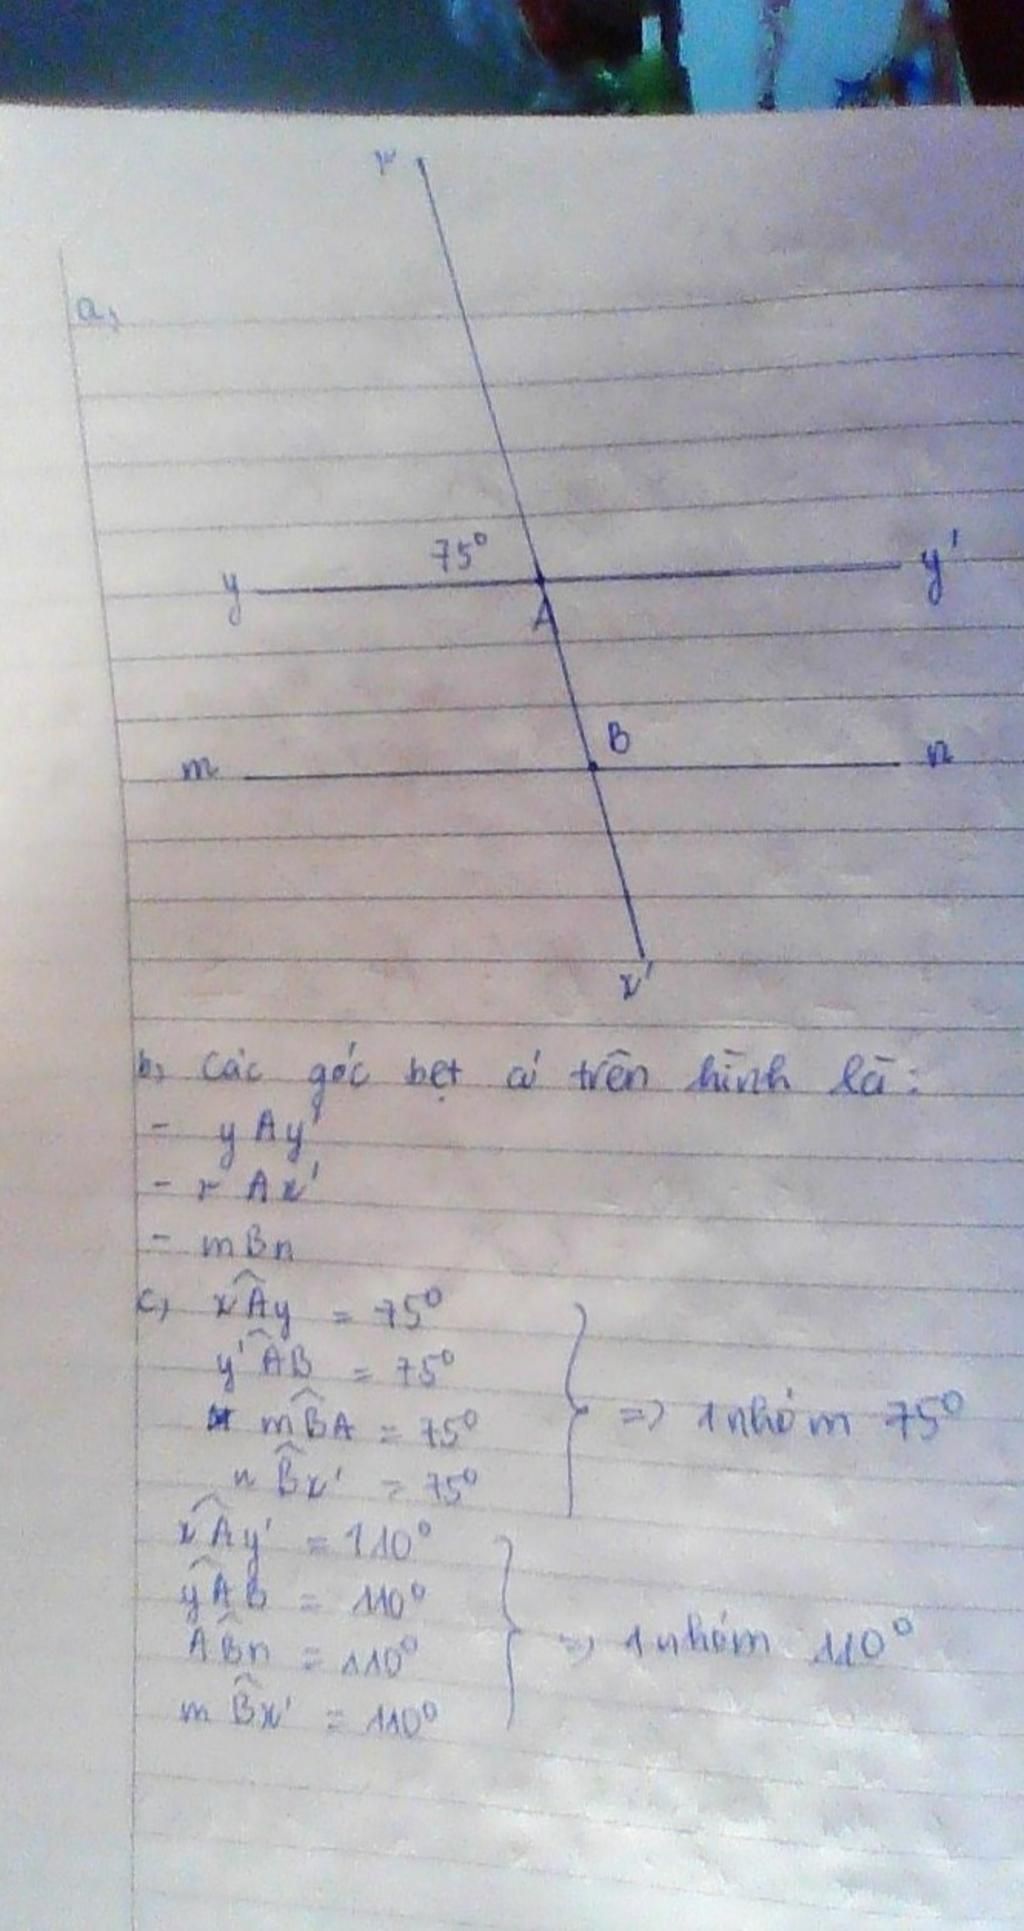 x
a,
75°
y y'
A
B
m n
x'
b, Các góc bẹt có trên hình là:
- yAy'
- xAx'
- mBn
c, xÂy = 75°
y'ÂB = 75°
mB̂A = 75°
nB̂x' = 75°
=> 1 nhóm 75°
xÂy' = 110°
yÂB = 110°
AB̂n = 110°
mB̂x' = 110°
=> 1 nhóm 110°